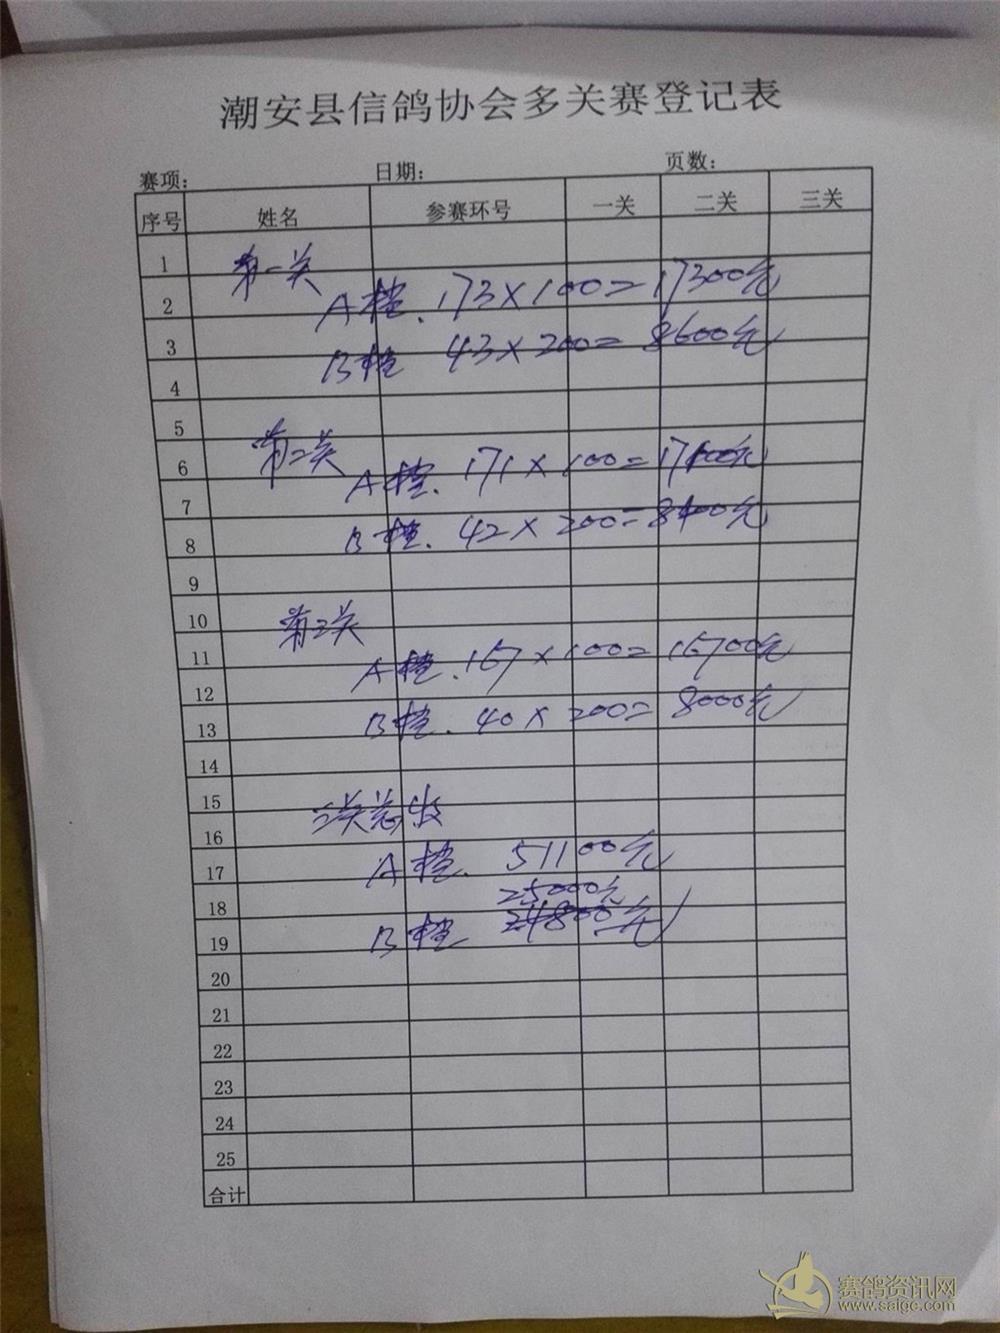 潮安县信鸽协会多关赛登记表
赛项: 日期: 页数:
序号 姓名 参赛环号 一关 二关 三关
1
第一关
2
A档. 173×100=17300元
3
B档 43×200=8600元
4
5
第二关
6
A档. 171×100=17100元
7
B档. 42×200=8400元
8
9
10
第三关
11
A档. 167×100=16700元
12
B档. 40×200=8000元
13
14
15
三关总收
16
A档. 51100元
17
25000元
18
B档 24800元
19
20
21
22
23
24
25
合计
赛鸽资讯网
www.saigc.com